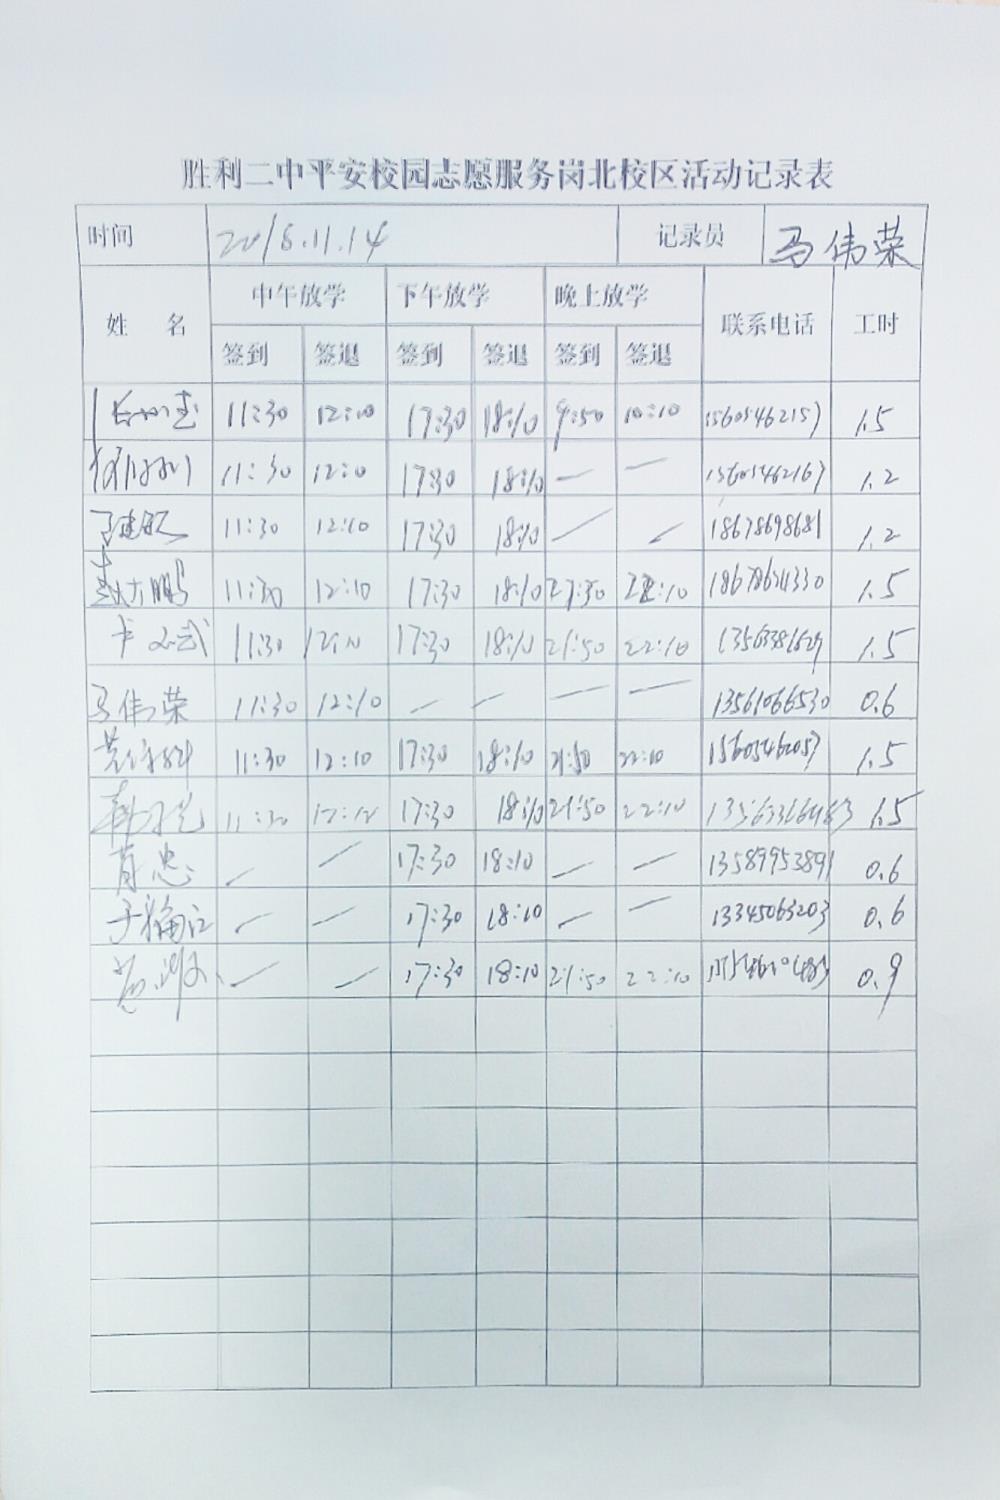 胜利二中平安校园志愿服务岗北校区活动记录表
时间 2018.11.14 记录员 马伟荣
姓 名 中午放学 下午放学 晚上放学 联系电话 工时
签到 签退 签到 签退 签到 签退
11:30 12:10 17:30 18:10 9:50 10:10 15605462157 1.5
11:30 12:10 17:30 18:10 — — 15605462167 1.2
11:30 12:10 17:30 18:10 — — 18678698681 1.2
11:30 12:10 17:30 18:10 22:10 18678624330 1.5
11:30 12:10 17:30 18:10 21:50 22:10 1.5
马伟荣 11:30 12:10 — — — — 13561066530 0.6
11:30 12:10 17:30 18:10 21:50 22:10 15605462057 1.5
11:30 12:10 17:30 18:10 21:50 22:10 1.5
肖忠 — — 17:30 18:10 — — 13589953891 0.6
— — 17:30 18:10 — — 13345063203 0.6
— — 17:30 18:10 21:50 22:10 0.9